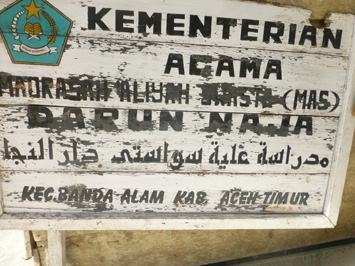 KEMENTERIAN
AGAMA
MADRASAH ALIYAH SWASTA (MAS)
DARUN NAJA
مدراسة علية سواستى دار النجا
KEC.BANDA ALAM KAB. ACEH TIMUR